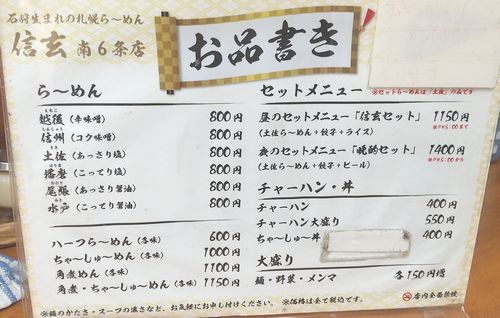 石狩生まれの札幌ら〜めん
信玄 南6条店
お品書き
ら〜めん
えちご
越後（辛味噌） 800円
しんしゅう
信州（コク味噌） 800円
とさ
土佐（あっさり塩） 800円
はりま
播磨（こってり塩） 800円
おわり
尾張（あっさり醤油） 800円
みと
水戸（こってり醤油） 800円
ハーフら〜めん（各味） 600円
ちゃ〜しゅ〜めん（各味） 1000円
角煮めん（各味） 1100円
角煮・ちゃ〜しゅ〜めん（各味） 1150円
※麺のかたさ・スープの濃さなど、お気軽にお申し付けください。 ※価格は全て税込です。
セットメニュー ※セットら〜めんは「土佐」のみです
昼のセットメニュー「信玄セット」 1150円
（土佐ら〜めん+餃子+ライス） ※PM5:00まで
夜のセットメニュー「晩酌セット」 1400円
（土佐ら〜めん+餃子+ビール） ※PM5:00から
チャーハン・丼
チャーハン 400円
チャーハン大盛り 550円
ちゃ〜しゅ〜丼 400円
大盛り
麺・野菜・メンマ 各150円増
店内全面禁煙